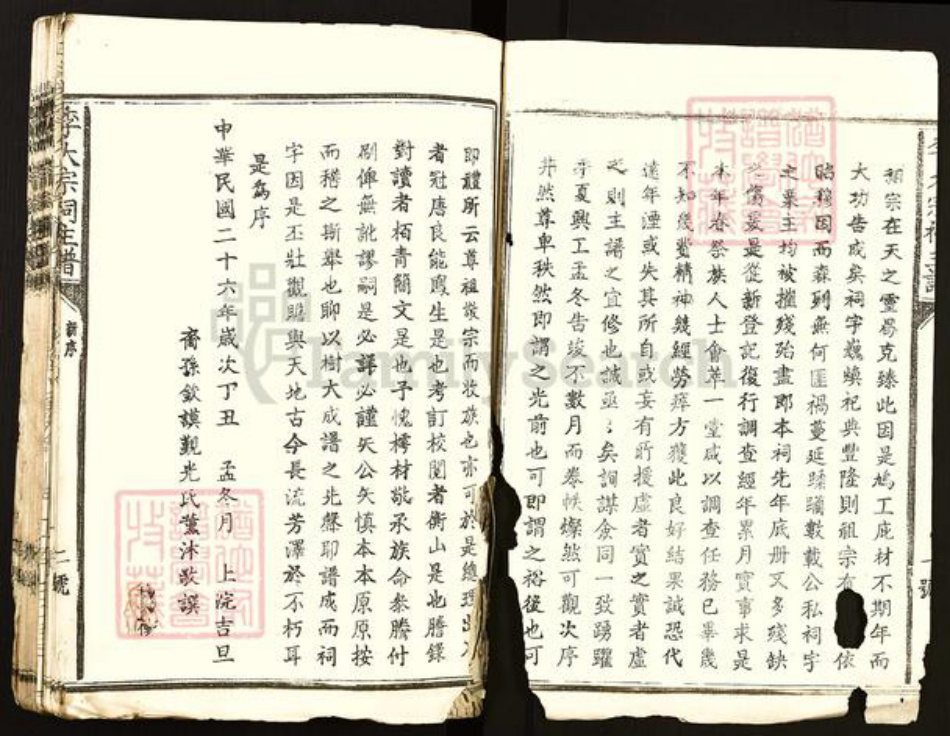 祖宗在天之靈曷克臻此因是鳩工庇材不期年而
大功告成矣祠宇巍煥祀典豐隆則祖宗有 依
昭穆因而森列無何匪禍蔓延蹂躪數載公私祠宇
之栗主均被摧殘殆盡即本祠先年底册又多殘缺
之傷爰是從新登記復行調查經年累月實事求是
本年春祭族人士會萃一堂咸以調查任務已畢幾
不知幾費精神幾經勞瘁方獲此良好結果誠恐代
遠年湮或失其所自或妄有所援虛者實之實者虛
之則主譜之宜修也誠亟亟矣詢謀僉同一致踴躍
季夏興工孟冬告竣不數月而卷帙燦然可觀次序
井然尊卑秩然即謂之光前也可即謂之裕後也可
即禮所云尊祖敬宗而收族也亦可於是總理
者冠唐良能鳳生是也考訂校閱者衡山是也謄錄
對讀者栢青簡文是也予愧樗材敬承族命叅謄付
剮俾無訛謬嗣是必詳必謹矢公矢慎本本原原按
而稽之斯舉也即以樹大成譜之先聲耶譜成而祠
宇因是丕壯觀瞻與天地古今長流芳澤於不朽耳
是為序
中華民國二十六年歲次丁丑 孟冬月 上浣吉旦
裔孫欽謨覲光氏薰沐敬譔
李大宗祠主譜
新序
二號
一號
FamilySearch